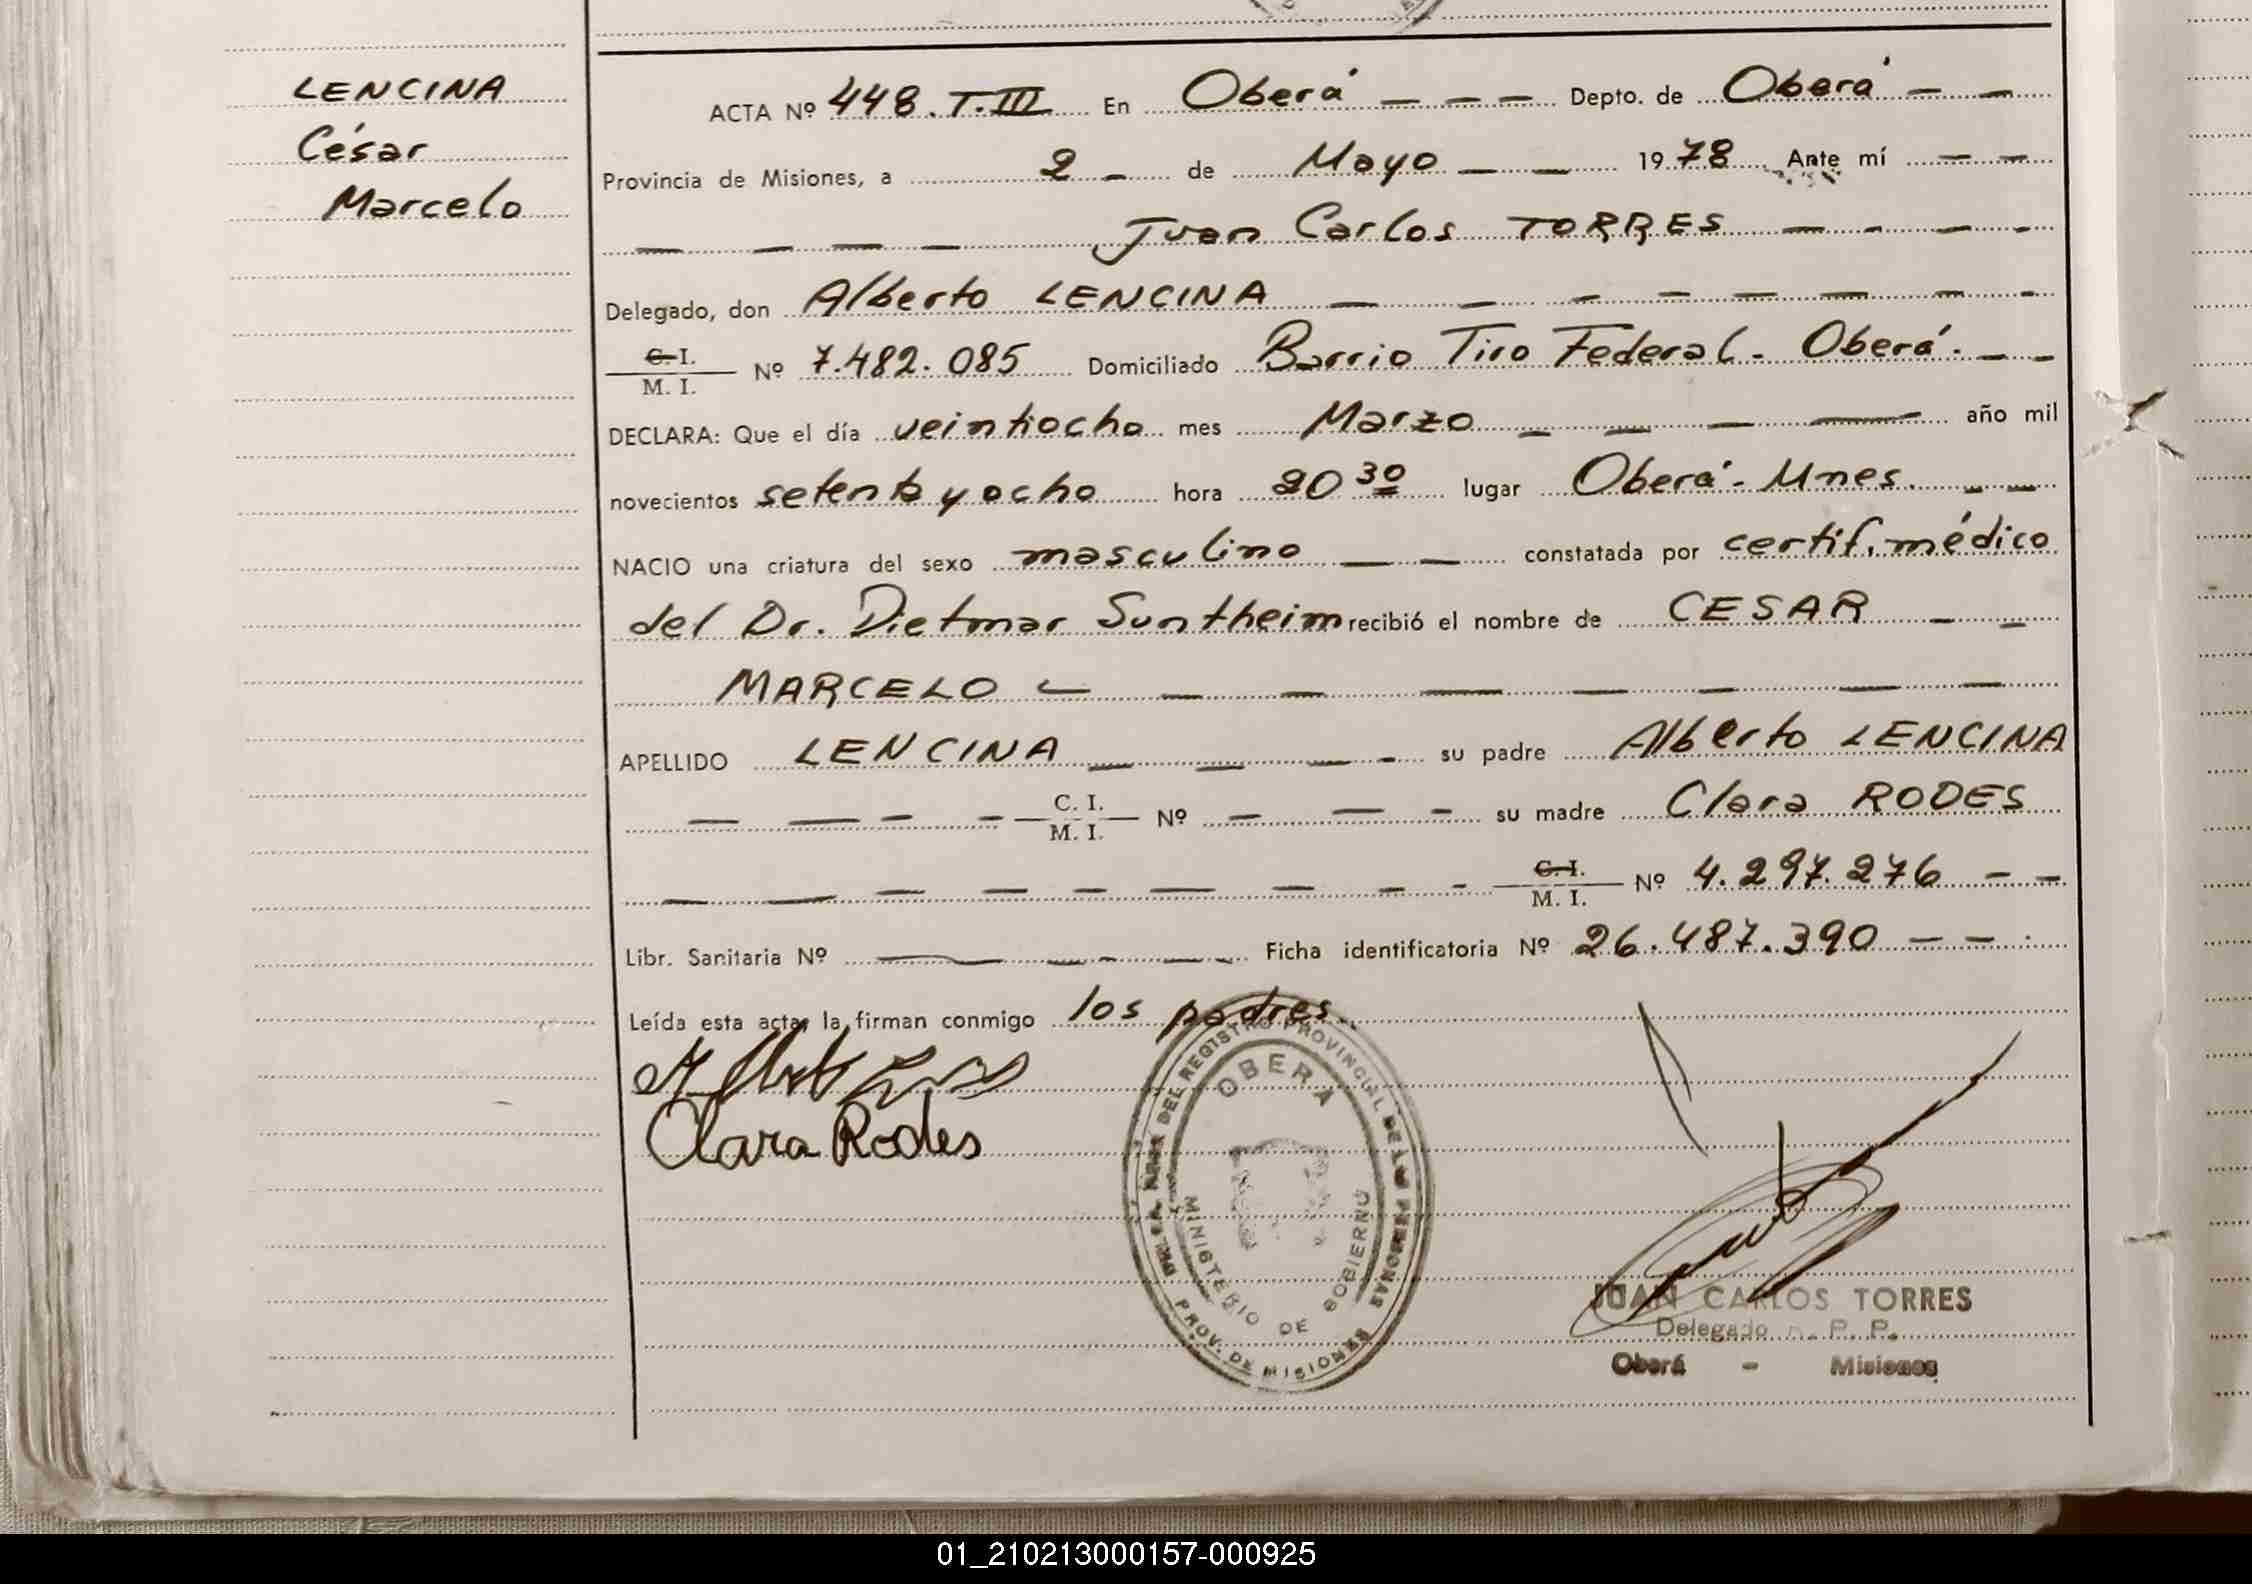 LENCINA
César
Marcelo
ACTA Nº 448. T. III En Oberá Depto. de Oberá
Provincia de Misiones, a 2 de Mayo 1978 Ante mí
Juan Carlos TORRES
Delegado, don Alberto LENCINA
C. I.
M. I. Nº 7.482.085 Domiciliado Barrio Tiro Federal - Oberá.
DECLARA: Que el día veintiocho mes Marzo año mil
novecientos setenta y ocho hora 20 30 lugar Oberá - Mnes.
NACIO una criatura del sexo masculino constatada por certif. médico
del Dr. Dietmar Suntheim recibió el nombre de CESAR
MARCELO
APELLIDO LENCINA su padre Alberto LENCINA
C. I.
M. I. Nº su madre Clara RODES
C. I.
M. I. Nº 4.297.276
Libr. Sanitaria Nº Ficha identificatoria Nº 26.487.390
Leída esta acta, la firman conmigo los padres.
Clara Rodes
DEL REGISTRO PROVINCIAL DE LAS PERSONAS
OBERA
MINISTERIO DE GOBIERNO
PROV. DE MISIONES
JUAN CARLOS TORRES
Delegado R. P. P.
Oberá - Misiones
01_210213000157-000925